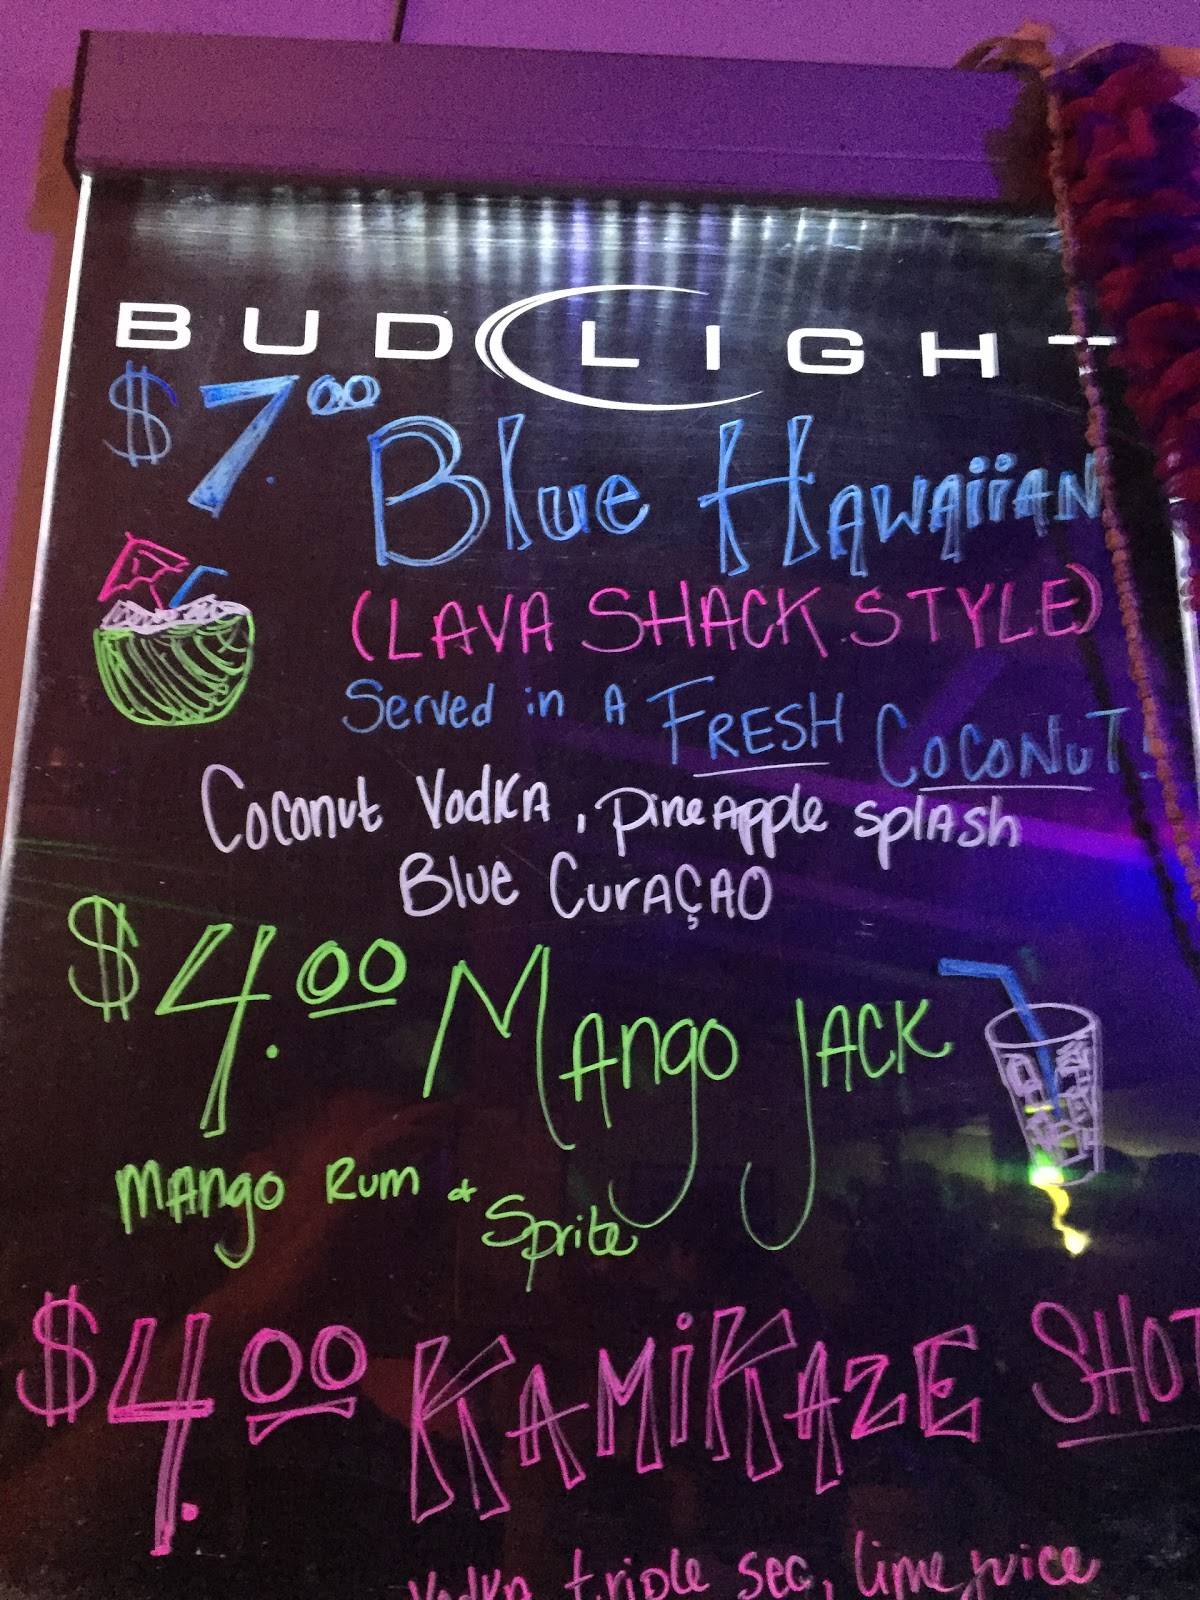 BUD LIGHT
$7.00 Blue HAWAiiAN
(LAVA SHACK STYLE)
Served in A FRESH COCONUT!
Coconut VodKA, PineApple SplAsh
Blue CurAÇAO
$4.00 MAngo JACK
MAngo Rum & Sprite
$4.00 KAMiKAZE SHOT
Vodka, triple sec, lime juice